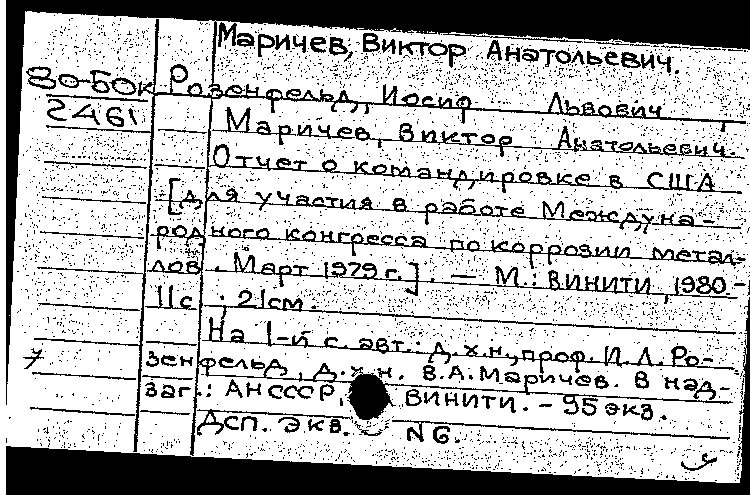 Маричев, Виктор Анатольевич.
80-БОк Розенфельд, Иосиф Львович,
2461 Маричев, Виктор Анатольевич.
Отчет о командировке в США
[для участия в работе Междуна-
родного конгресса по коррозии метал-
лов. Март 1979 г.]. — М.: ВИНИТИ, 1980.-
11с.; 21см.
На 1-й с. авт.: д.х.н., проф. И.Л.Ро-
7 зенфельд, д.х.н. В.А.Маричев. В над-
заг.: АН СССР, ВИНИТИ. - 95 экз.
Дсп. Экз. N6.